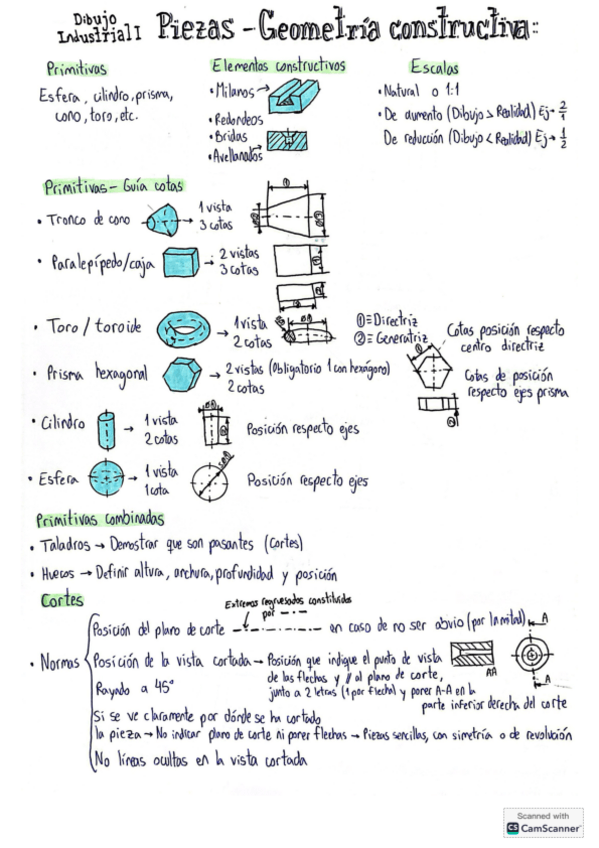 Dibujo Industrial I
Piezas - Geometría constructiva:
Primitivas
Esfera, cilindro, prisma,
cono, toro, etc.
Elementos constructivos
• Milanos →
• Redondeos
• Bridas
• Avellanados
Escalas
• Natural o 1:1
• De aumento (Dibujo > Realidad) Ej → 2/1
De reducción (Dibujo < Realidad) Ej → 1/2
Primitivas - Guía cotas
• Tronco de cono → 1 vista
3 cotas
• Paralepípedo/caja → 2 vistas
3 cotas
• Toro / toroide → 1 vista
2 cotas
① ≡ Directriz
② ≡ Generatriz
Cotas posición respecto
centro directriz
• Prisma hexagonal → 2 vistas (Obligatorio 1 con hexágono)
2 cotas
Cotas de posición
respecto ejes prisma
• Cilindro → 1 vista
2 cotas
Posición respecto ejes
• Esfera → 1 vista
1 cota
Posición respecto ejes
Primitivas combinadas
• Taladros → Demostrar que son pasantes (Cortes)
• Huecos → Definir altura, anchura, profundidad y posición
Cortes
Extremos regruesados constituidos
por
• Normas
Posición del plano de corte en caso de no ser obvio (por la mitad)
Posición de la vista cortada → Posición que indique el punto de vista
de las flechas y // al plano de corte,
junto a 2 letras (1 por flecha) y poner A-A en la
parte inferior derecha del corte
A
AA
A
Rayado a 45°
Si se ve claramente por dónde se ha cortado
la pieza → No indicar plano de corte ni poner flechas → Piezas sencillas, con simetría o de revolución
No líneas ocultas en la vista cortada
Scanned with
CS CamScanner